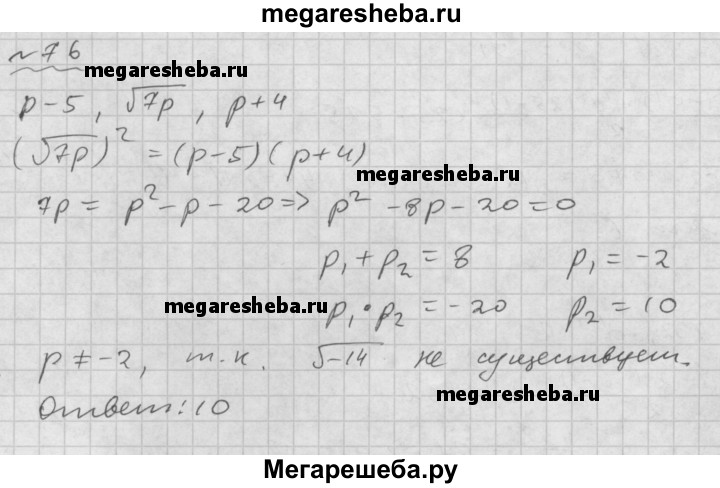 megaresheba.ru
№76
megaresheba.ru
p-5, √7p, p+4
(√7p)² = (p-5)(p+4)
megaresheba.ru
7p = p²-p-20 => p²-8p-20=0
p₁+p₂=8 p₁=-2
megaresheba.ru
p₁•p₂=-20 p₂=10
p≠-2, т.к. √-14 не существует.
megaresheba.ru
Ответ: 10
Мегарешеба.ру